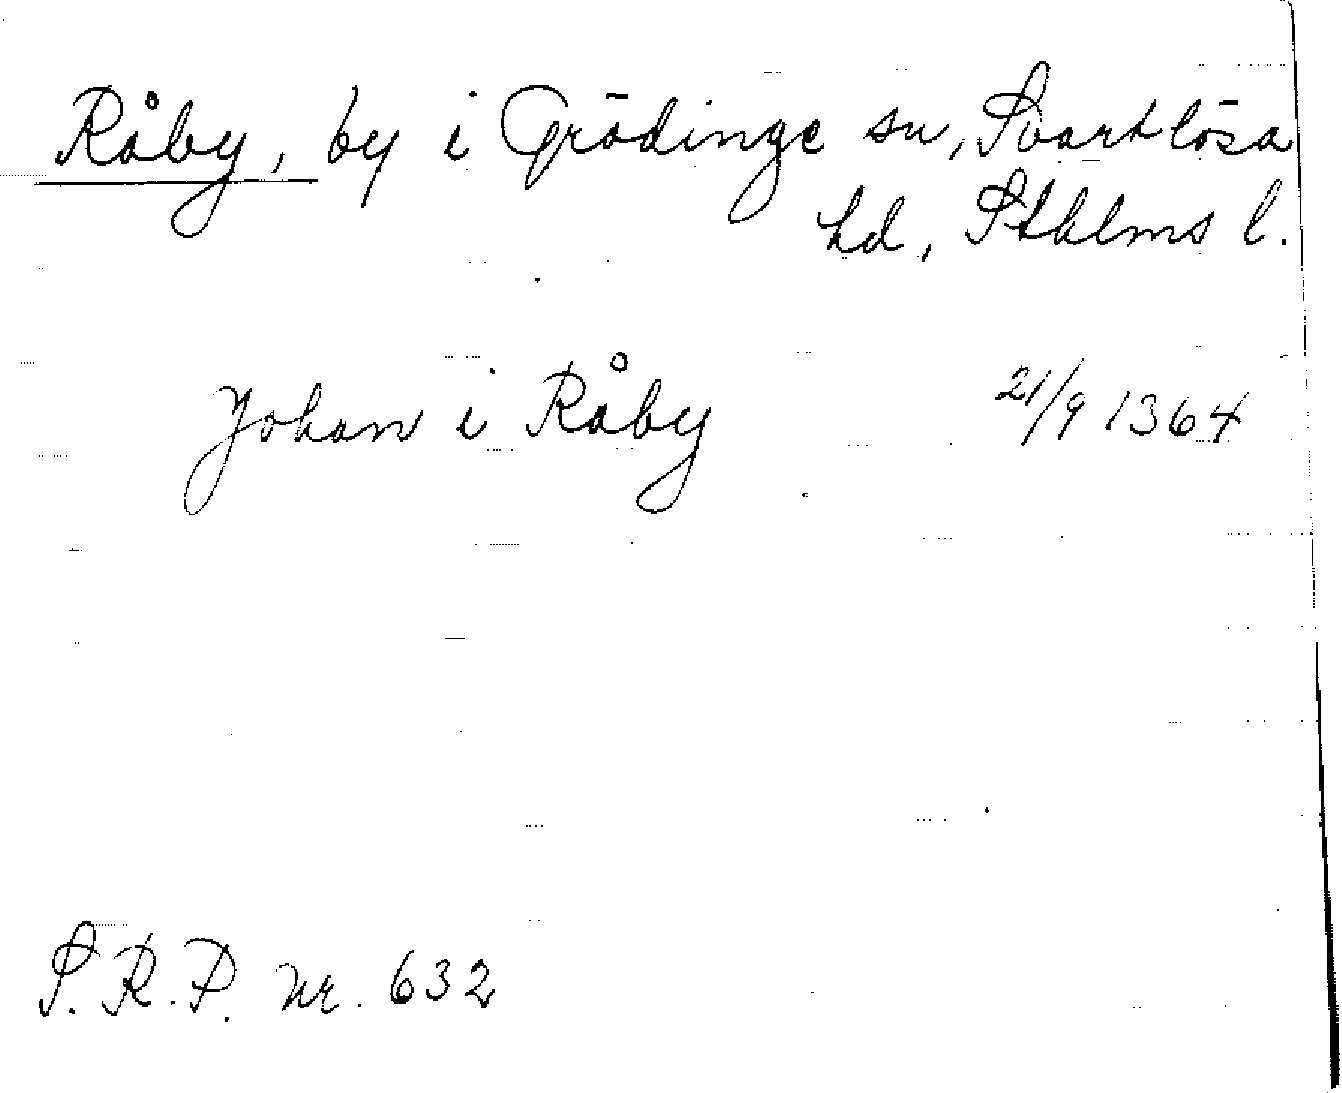 Råby, by i Grödinge sn, Svartlösa
hd, Sthlms l.
Johan i Råby 21/9 1364
S.R.P. nr. 632